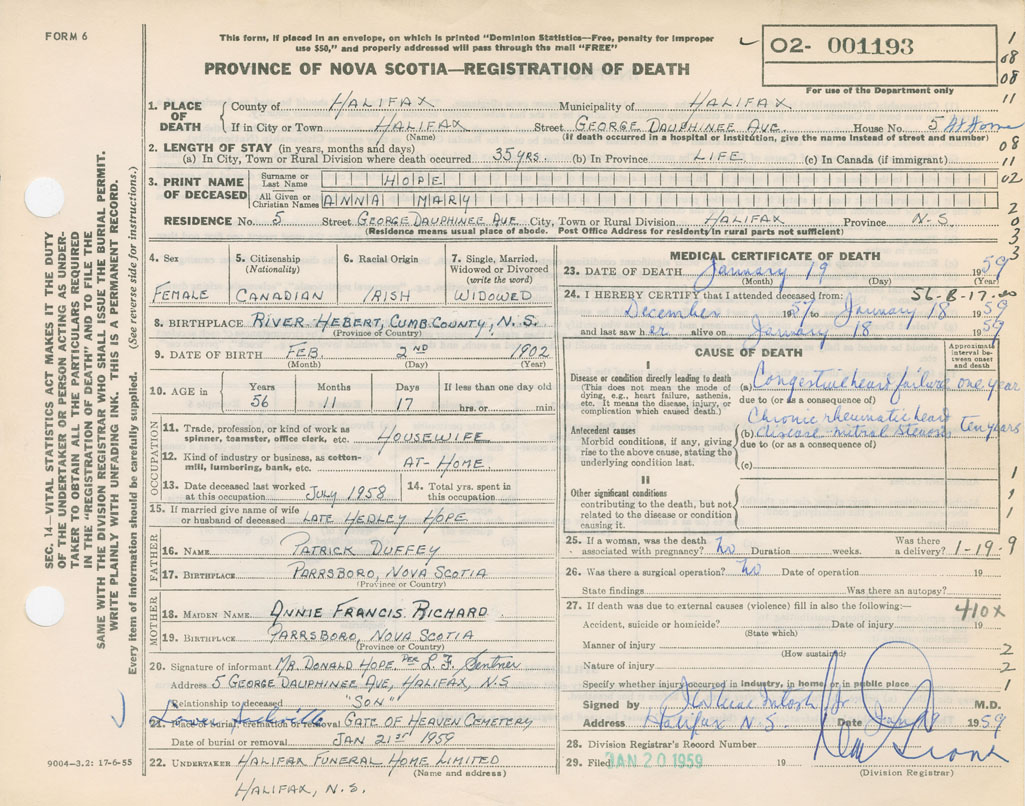 FORM 6
This form, if placed in an envelope, on which is printed "Dominion Statistics—Free, penalty for improper
use $50," and properly addressed will pass through the mail "FREE"
PROVINCE OF NOVA SCOTIA—REGISTRATION OF DEATH
02- 001193
For use of the Department only
1
08
08
11
08
11
02
2
0
3
3
SEC. 14—VITAL STATISTICS ACT MAKES IT THE DUTY
OF THE UNDERTAKER OR PERSON ACTING AS UNDER-
TAKER TO OBTAIN ALL THE PARTICULARS REQUIRED
IN THE "REGISTRATION OF DEATH" AND TO FILE THE
SAME WITH THE DIVISION REGISTRAR WHO SHALL ISSUE THE BURIAL PERMIT.
WRITE PLAINLY WITH UNFADING INK. THIS IS A PERMANENT RECORD.
Every item of information should be carefully supplied. (See reverse side for instructions.)
1. PLACE OF DEATH County of HALIFAX Municipality of HALIFAX
If in City or Town HALIFAX Street GEORGE DAUPHINEE AVE. House No. 5 At Home
(Name) (If death occurred in a hospital or institution, give the name instead of street and number)
2. LENGTH OF STAY (in years, months and days)
(a) In City, Town or Rural Division where death occurred 35 YRS. (b) In Province LIFE (c) In Canada (if immigrant)
3. PRINT NAME OF DECEASED Surname or Last Name HOPE
All Given or Christian Names ANNA MARY
RESIDENCE No. 5 Street GEORGE DAUPHINEE AVE City, Town or Rural Division HALIFAX Province N.S.
(Residence means usual place of abode. Post Office Address for residents in rural parts not sufficient)
4. Sex 5. Citizenship (Nationality) 6. Racial Origin 7. Single, Married, Widowed or Divorced (write the word)
FEMALE CANADIAN IRISH WIDOWED
8. BIRTHPLACE RIVER-HEBERT, CUMB COUNTY, N.S.
(Province or Country)
9. DATE OF BIRTH FEB. 2ND 1902
(Month) (Day) (Year)
10. AGE in Years Months Days If less than one day old
56 11 17 hrs. or min.
OCCUPATION
11. Trade, profession, or kind of work as
spinner, teamster, office clerk, etc. HOUSEWIFE
12. Kind of industry or business, as cotton-
mill, lumbering, bank, etc. AT-HOME.
13. Date deceased last worked at this occupation JULY 1958 14. Total yrs. spent in this occupation
15. If married give name of wife
or husband of deceased LATE HEDLEY HOPE
FATHER
16. NAME PATRICK DUFFEY
17. BIRTHPLACE PARRSBORO, NOVA SCOTIA
(Province or Country)
MOTHER
18. MAIDEN NAME ANNIE FRANCIS RICHARD
19. BIRTHPLACE PARRSBORO, NOVA SCOTIA
(Province or Country)
20. Signature of informant MR. DONALD HOPE, Per L.F. Sentner
Address 5 GEORGE DAUPHINEE AVE, HALIFAX, N.S
Relationship to deceased "SON"
21. Place of burial, cremation or removal GATE OF HEAVEN CEMETERY
Lower Sackville
Date of burial or removal JAN 21ST 1959
22. UNDERTAKER HALIFAX FUNERAL HOME LIMITED
(Name and address)
HALIFAX, N.S.
9004-3.2: 17-6-55
MEDICAL CERTIFICATE OF DEATH
23. DATE OF DEATH January 19 1959
(Month) (Day) (Year)
24. I HEREBY CERTIFY that I attended deceased from: 56-8-17.00
December 1957 to January 18 1959
and last saw her alive on January 18 1959
CAUSE OF DEATH
Approximate interval between onset and death
I
Disease or condition directly leading to death
(This does not mean the mode of
dying, e.g., heart failure, asthenia,
etc. It means the disease, injury, or
complication which caused death.)
(a) Congestive heart failure one year
due to (or as a consequence of)
Antecedent causes
Morbid conditions, if any, giving
rise to the above cause, stating the
underlying condition last.
Chronic rheumatic heart
(b) disease - mitral stenosis ten years
due to (or as a consequence of)
(c)
II
Other significant conditions
contributing to the death, but not
related to the disease or condition
causing it.
1
1
1
25. If a woman, was the death
associated with pregnancy? No Duration weeks. Was there a delivery? 1-19-9
26. Was there a surgical operation? No Date of operation 19
State findings Was there an autopsy?
27. If death was due to external causes (violence) fill in also the following:— 410X
Accident, suicide or homicide? Date of injury 19
(State which)
Manner of injury 2
(How sustained)
Nature of injury 2
Specify whether injury occurred in industry, in home or in public place 1
Signed by M.D.
Address Halifax N.S. Date Jan 19 1959
28. Division Registrar's Record Number
29. Filed JAN 20 1959 19
(Division Registrar)